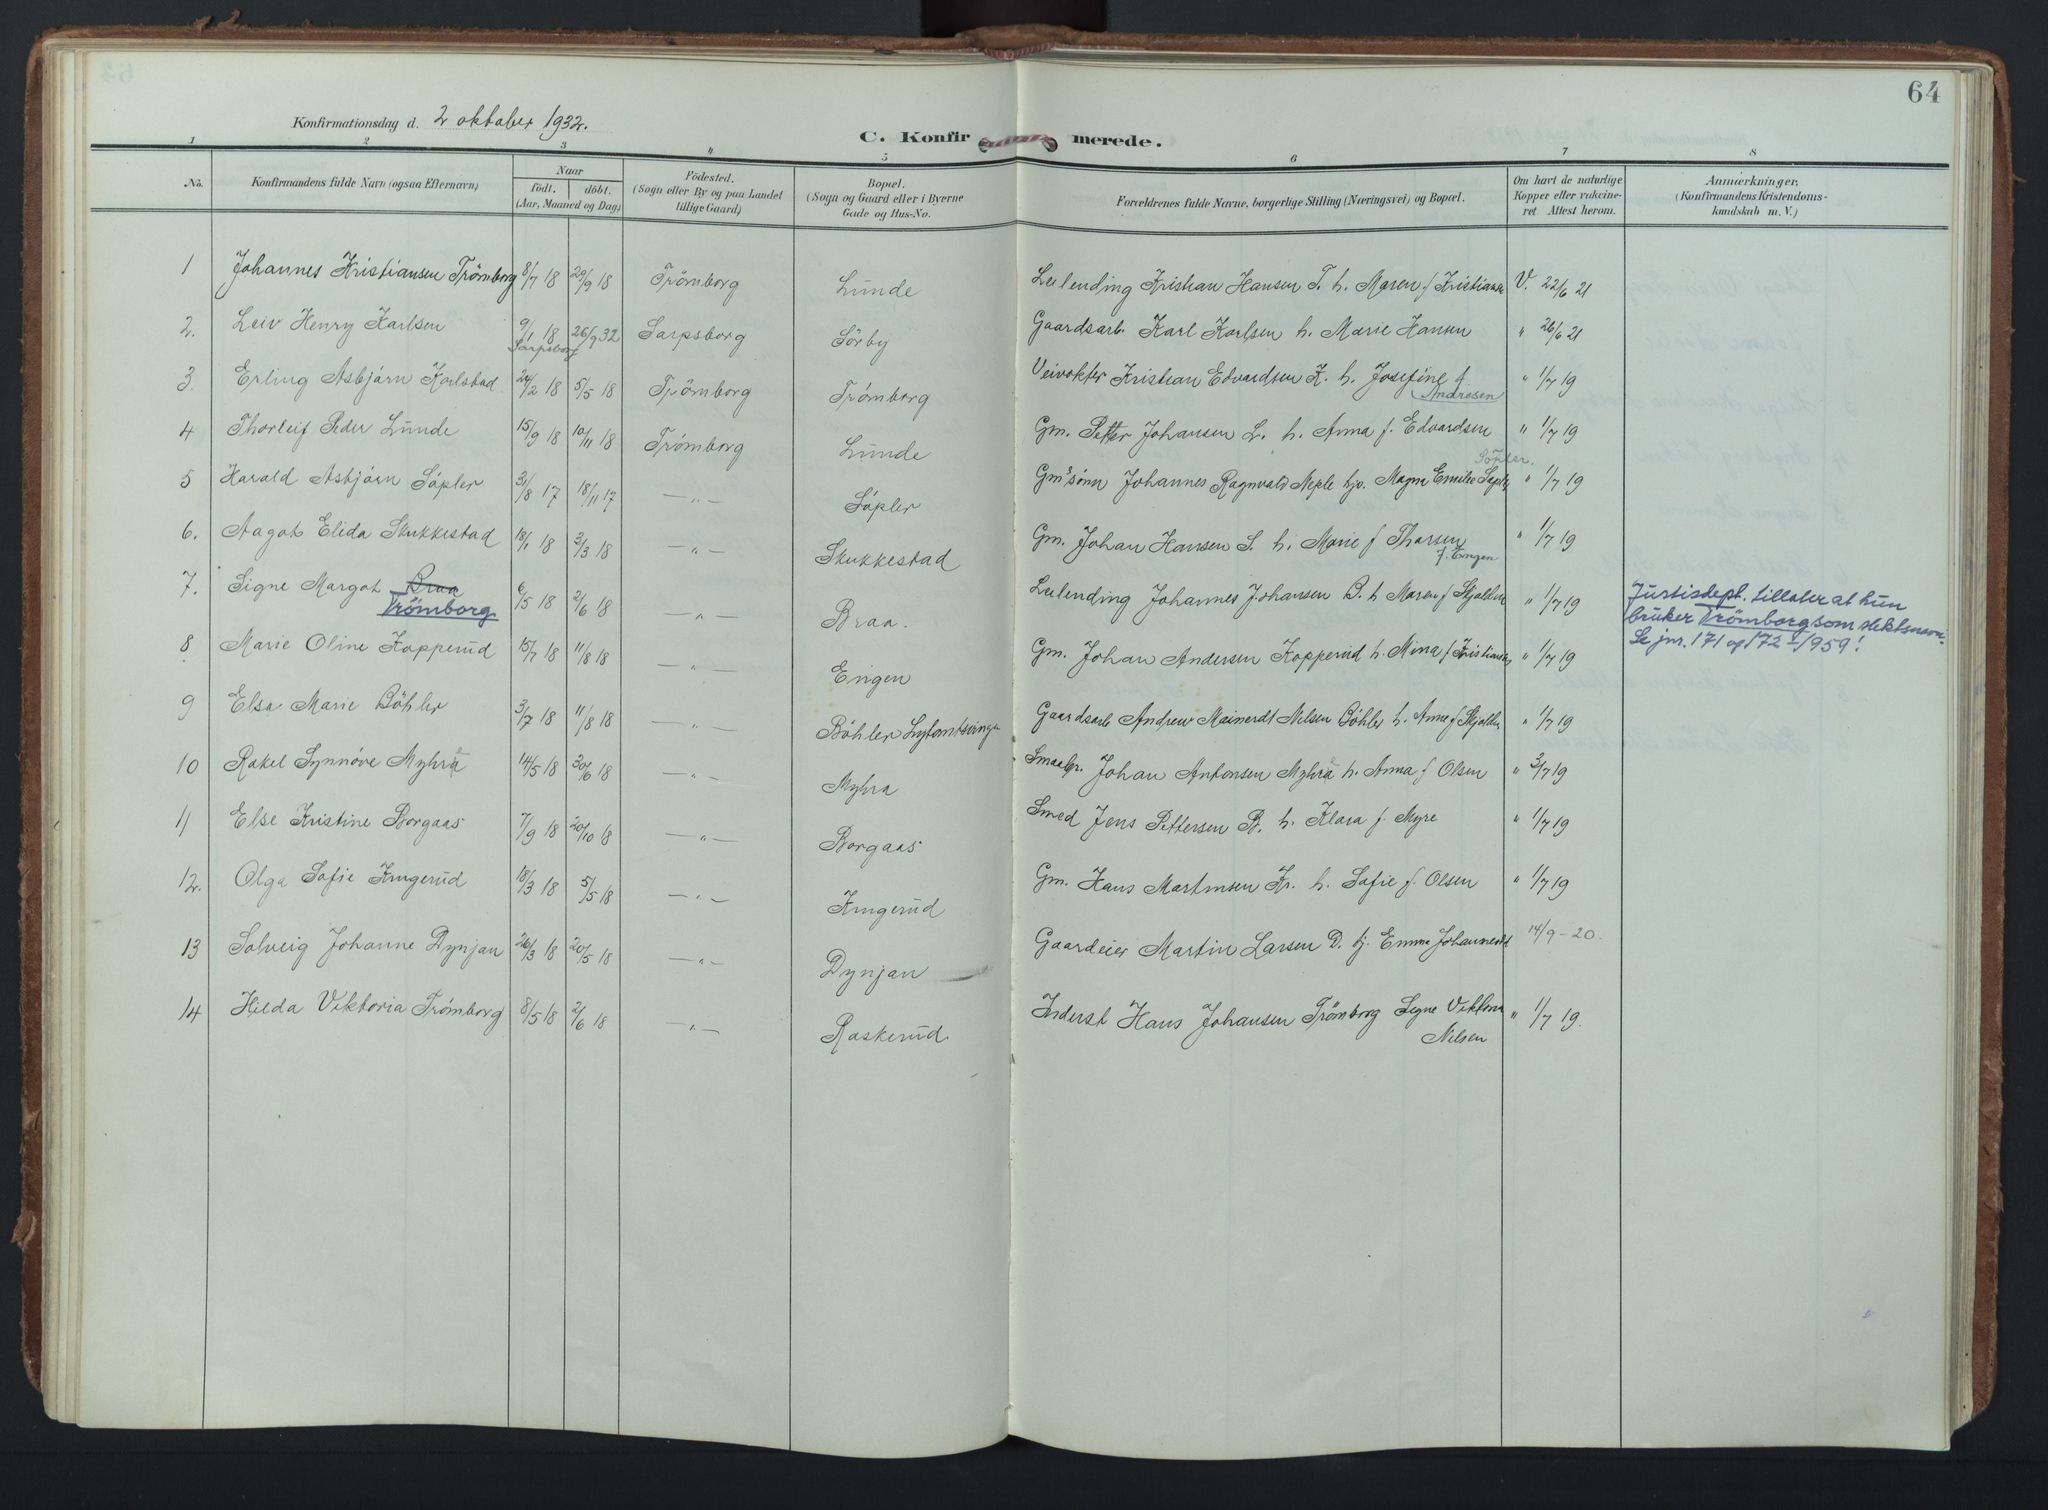 64
Konfirmationsdag d. 2 oktober 1932.
C. Konfirmerede.
1 2 3 4 5 6 7 8
No. Konfirmandens fulde Navn (ogsaa Efternavn) Naar födt. döbt. (Aar, Maaned og Dag) Födested. (Sogn eller By og paa Landet tillige Gaard) Bopæl. (Sogn og Gaard eller i Byerne Gade og Hus-No. Forældrenes fulde Navne, borgerlige Stilling (Næringsvei) og Bopæl. Om havt de naturlige Kopper eller vakcineret. Attest herom. Anmærkninger. (Konfirmandens Kristendomskundskab m. V.)
1 Johannes Kristiansen Trömborg 8/7 18 29/9 18 Trömborg Lunde Leilending Kristian Hansen T. h. Maren f Kristians V. 22/6 21
2. Leiv Henry Karlsen 9/1 18 Sarpsborg 26/9 32 Sarpsborg Sörby Gaardsarb. Karl Karlsen h. Marie Hansen " 26/6 21
3. Erling Asbjörn Karlstad 24/2 18 5/5 18 Trömborg Trömborg Veivokter Kristian Edvardsen K. h. Josefine f. Andresen " 1/7 19
4 Thorleif Peder Lunde 15/9 18 10/11 18 Trömborg Lunde Gm. Petter Johansen L. h. Anna f. Edvardsen " 1/7 19
5 Harald Asbjörn Söpler 31/8 17 18/11 17 — " — Söpler Gm's sönn Johannes Ragnvald Neple hjo. Magna Emilie Söpler. " 1/7 19
6. Aagot Elida Skukkestad 18/1 18 3/3 18 — " — Skukkestad Gm. Johan Hansen S. h. Marie f Thorsen f. Engen " 1/7 19
7. Signe Margot Braa Trömborg 6/5 18 2/6 18 — " — Braa. Leilending Johannes Johansen B. h Maren f Skjolden " 1/7 19 Justisdept. tillater at hun
bruker Trömborg som slektsnavn.
Se jnr. 171 og 172 1/1959!
8 Marie Oline Kopperud 15/7 18 11/8 18 — " — Engen Gm. Johan Andersen Kopperud h. Mina f Kristians " 1/7 19
9 Elsa Marie Böhler 3/7 18 11/8 18 — " — Böhler Gaardsarb Andrew Mainerdt Nilsen Böhler h. Anne f Skjolden " 1/7 19
10 Rakel Synnöve Myhra 14/5 18 30/6 18 — " — Myhra Smaabr. Johan Antonsen Myhra h. Anna f Olsen " 3/7 19
11 Else Kristine Borgaas 7/9 18 20/10 18 — " — Borgaas Smed Jens Pettersen B. h. Klara f. Myre " 1/7 19
12. Olga Sofie Krugerud 18/3 18 5/5 18 — " — Krugerud Gm. Hans Martinsen Kr. h. Sofie f. Olsen " 1/7 19
13 Solveig Johanne Dynjan 26/3 18 20/5 18 — " — Dynjan Gaardeier Martin Larsen D. hj. Emma 14/9 – 20.
14 Hilda Viktoria Trömborg 8/5 18 2/6 18 — " — Raskerud Inderst Hans Johansen Trömborg Signe Viktoria Nilsen " 1/7 19.